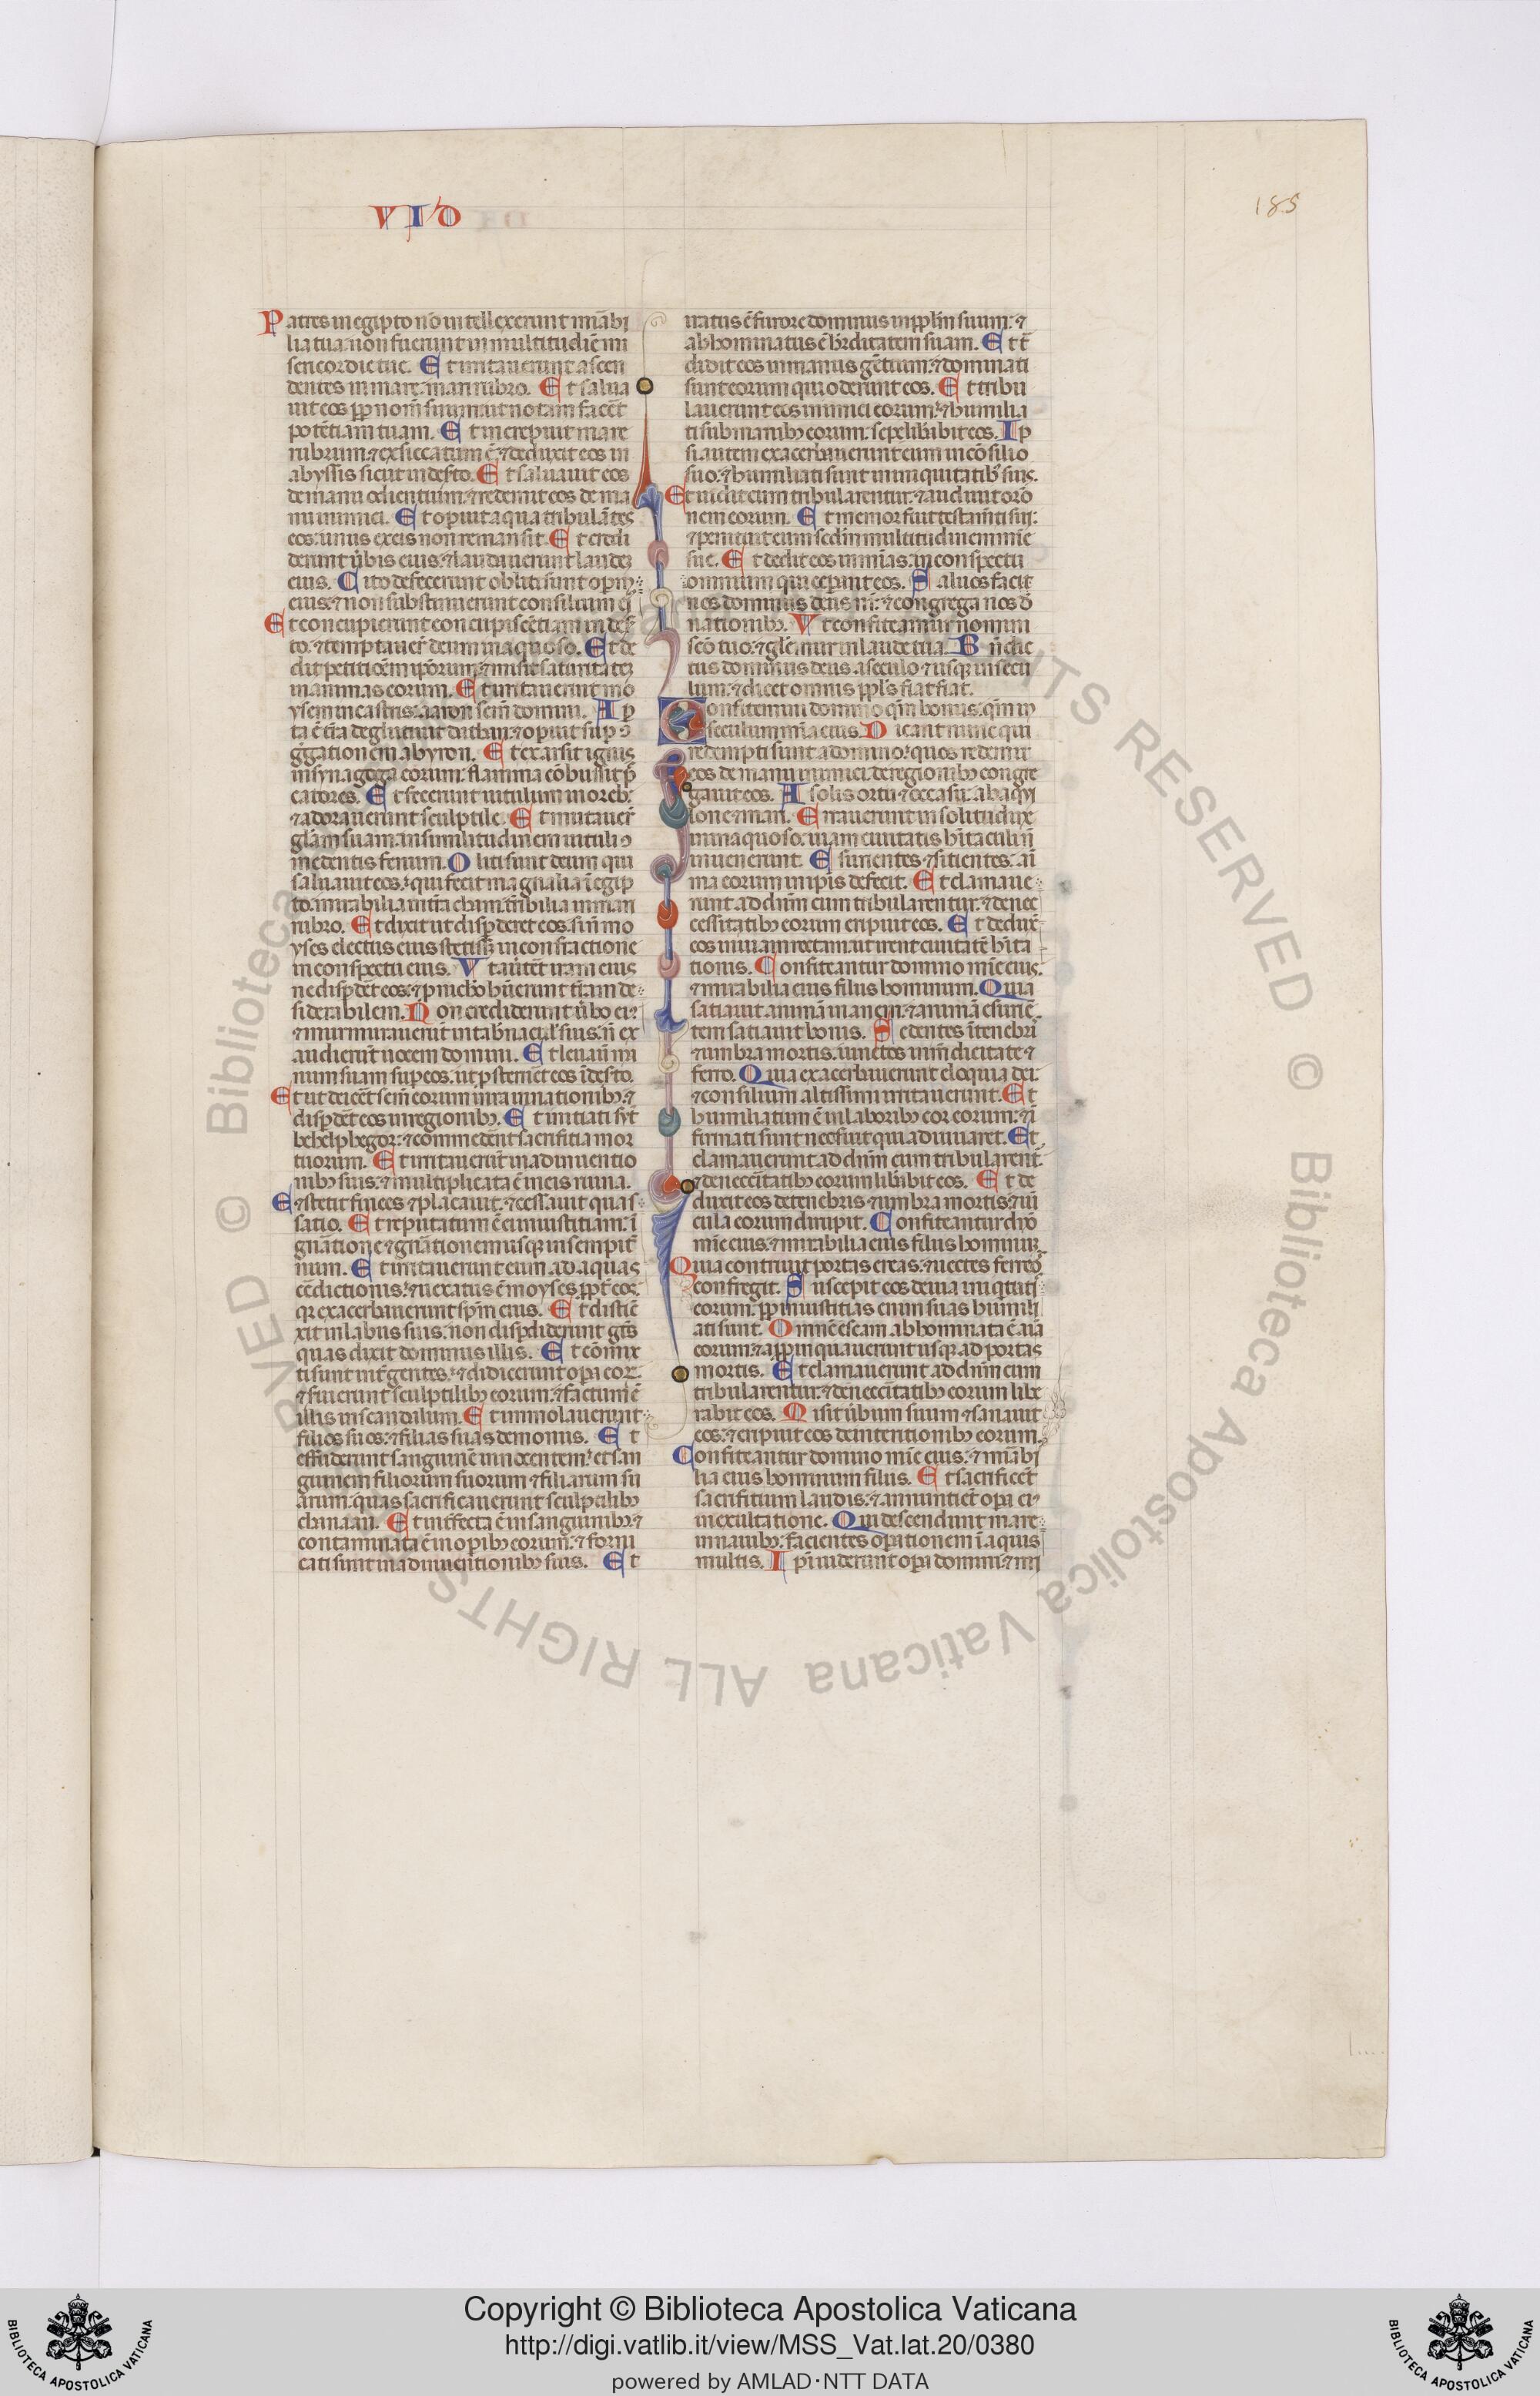 VID
185
Patres in egipto nō intellexerunt mirabi
lia tua: non fuerunt in multitudīe mi
sericordie tue. Et irritauerunt ascen
dentes in mare: mari rubro. Et salua
uit eos ꝓp nom̄ suum: ut notam facēt
potētiam tuam. Et increpauit mare
rubrum: ⁊ exsiccatum ē: ⁊ deduxit eos in
abyssis sicut in deserto. Et saluauit eos
de manu odientium: ⁊ redemit eos de ma
nu inimici. Et operuit aqua tribulātes
eos: unus ex eis non remansit. Et credi
derunt ūbis eius: ⁊ laudauerunt laudeꝫ
eius. Cito defecerunt obliti sunt operuꝫ
eius: ⁊ non sustinuerunt consilium eꝰ
Et concupierunt concupiscētiam in deser
to: ⁊ temptauer̄ deum in aquoso. Et de
dit petitiōem ipsorum: ⁊ misit saturitateꝫ
in animas eorum. Et irritauerunt mo
ysem in castris: aaron scm̄ domini. Ap
ta ē tr̄a ⁊ deglutiuit dathan: ⁊ operuit sup ↄ
gregationem abyron. Et exarsit ignis
in synagoga eorum: flamma cōbussit pec
catores. Et fecerunt uitulum in oreb:
⁊ adorauerunt sculptile. Et mutauer̄
gl̄am suam: in similitudinem uituli ↄ
medentis fenum. Obliti sunt deum qui
saluauit eos: qui fecit magnalia ī egip
to: mirabilia in tr̄a cham: terribilia in mari
rubro. Et dixit ut disperderet eos: si nō mo
yses electus eius stetisset in confractione
in conspectu eius. Ut auertēt iram eius
ne disperdēt eos: ⁊ ꝓ nichilo habuerunt tr̄am de
siderabilem. Non crediderunt ūbo eiꝰ
⁊ murmurauerūt in tabernaculis suis: nō ex
audierūt uocem domini. Et leuauit ma
num suam sup eos: ut ꝓsternēt eos ī deserto.
Et ut deicēt sem̄ eorum in nationibꝫ: ⁊
disperdēt eos in regionibꝫ. Et initiati sūt
behelphegor: ⁊ comederūt sacrificia mor
tuorum. Et irritauerūt in adinuentio
nibꝫ suis: ⁊ multiplicata ē in eis ruina.
Et stetit finees ⁊ placauit: ⁊ cessauit quas
satio. Et reputatum ē ei in iustitiam: ī
gn̄atione ⁊ gn̄ationem usqꝫ in sempit̄
num. Et irritauerunt eum ad aquas
cōdictionis: ⁊ uexatus ē moyses ꝓpt̄ eos:
qꝛ exacerbauerunt sp̄m eius. Et distīc
xit in labiis suis: non disperdiderunt gētes
quas dixit dominus illis. Et cōmix
ti sunt int̄ gentes: ⁊ didicerunt opera eoꝝ
⁊ seruierunt sculptilibꝫ eorum: ⁊ factum ē
illis in scandalum. Et immolauerunt
filios suos: ⁊ filias suas demoniis. Et
effuderunt sanguinē innocentem: et san
guinem filiorum suorum ⁊ filiarum su
arum: quas sacrificauerunt sculptilibꝫ
chanaan. Et infecta ē in sanguinibꝫ: ⁊
contaminata ē in operibꝫ eorum: ⁊ forni
cati sunt in adinuentionibꝫ suis. Et
iratus ē furore dominus in pplm̄ suum: ⁊
abhominatus ē hereditatem suam. Et tr̄
didit eos in manus gētium: ⁊ dominati
sunt eorum qui oderunt eos. Et tribu
lauerunt eos inimici eorum: ⁊ humilia
ti sub manibꝫ eorum: sepe liberabit eos. Ip
si autem exacerbauerunt eum in cōsilio
suo: ⁊ humiliati sunt in iniquitatibꝫ suis.
Et uidit cum tribularentur: ⁊ audiuit orō
nem eorum. Et memor fuit testamēti sui:
⁊ penituit eum scd̄m multitudinem mīe
sue. Et dedit eos in mīas: in conspectu
omnium qui ceperant eos. Saluos fac
nos dominus deus nr̄: ⁊ congrega nos de
nationibꝫ. Ut confiteamur nomini
scō tuo: ⁊ gloriemur in laude tua. Bn̄dic
tus dominus deus a seculo ⁊ usqꝫ in secu
lum: ⁊ dicet omnis ppl̄s fiat fiat.
Confitemini domino qm̄ bonus: qm̄ in
seculum mīa eius. Dicant nunc qui
redempti sunt a domino: quos redemit
eos de manu inimici: de regionibꝫ congre
gauit eos. A solis ortu ⁊ occasu: ab aqui
lone ⁊ mari. Errauerunt in solitudine
in inaquoso: uiam ciuitatis habitaculi nō
inuenerunt. Esurientes ⁊ sitientes: ani
ma eorum in ipsis defecit. Et clamaue
runt ad dnm̄ cum tribularentur: ⁊ de nec
cessitatibꝫ eorum eripuit eos. Et deduxit
eos in uiam rectam: ut irent in ciuitatē habita
tionis. Confiteantur domino mīe eius:
⁊ mirabilia eius filiis hominum. Quia
satiauit animā inanem: ⁊ animā esuriē
tem satiauit bonis. Sedentes ī tenebris
⁊ umbra mortis: uinctos in mendicitate ⁊
ferro. Quia exacerbauerunt eloquia dei:
⁊ consilium altissimi irritauerunt. Et
humiliatum ē in laboribꝫ cor eorum: ⁊ ī
firmati sunt nec fuit qui adiuuaret. Et
clamauerunt ad dnm̄ cum tribularent̄:
⁊ de necc̄itatibꝫ eorum liberabit eos. Et de
duxit eos de tenebris ⁊ umbra mortis: ⁊ ui
cula eorum dirupit. Confiteantur dn̄o
mīe eius: ⁊ mirabilia eius filiis hominuꝫ
Quia contriuit portas ereas: ⁊ uectes ferreos
confregit. Suscepit eos de uia iniquitatis
eorum: ꝓpt̄ iniustitias enim suas humili
ati sunt. Omnē escam abhominata ē aīa
eorum: ⁊ appropinquauerunt usqꝫ ad portas
mortis. Et clamauerunt ad dnm̄ cum
tribularentur: ⁊ de necc̄itatibꝫ eorum libe
rabit eos. Misit ūbum suum ⁊ sanauit
eos: ⁊ eripuit eos de interitionibꝫ eorum.
Confiteantur domino mīe eius: ⁊ mirabi
lia eius hominum filiis. Et sacrificēt
sacrificium laudis: ⁊ annuntiēt opera eiꝰ
in exultatione. Qui descendunt mare
in nauibꝫ: facientes operationem ī aquis
multis. Ipsi uiderunt opera domini: ⁊ mi
© Biblioteca Apostolica Vaticana ALL RIGHTS RESERVED © Biblioteca Apostolica Vaticana ALL RIGHTS RESERVED
Copyright © Biblioteca Apostolica Vaticana
http://digi.vatlib.it/view/MSS_Vat.lat.20/0380
powered by AMLAD·NTT DATA
BIBLIOTECA APOSTOLICA VATICANA
BIBLIOTECA APOSTOLICA VATICANA